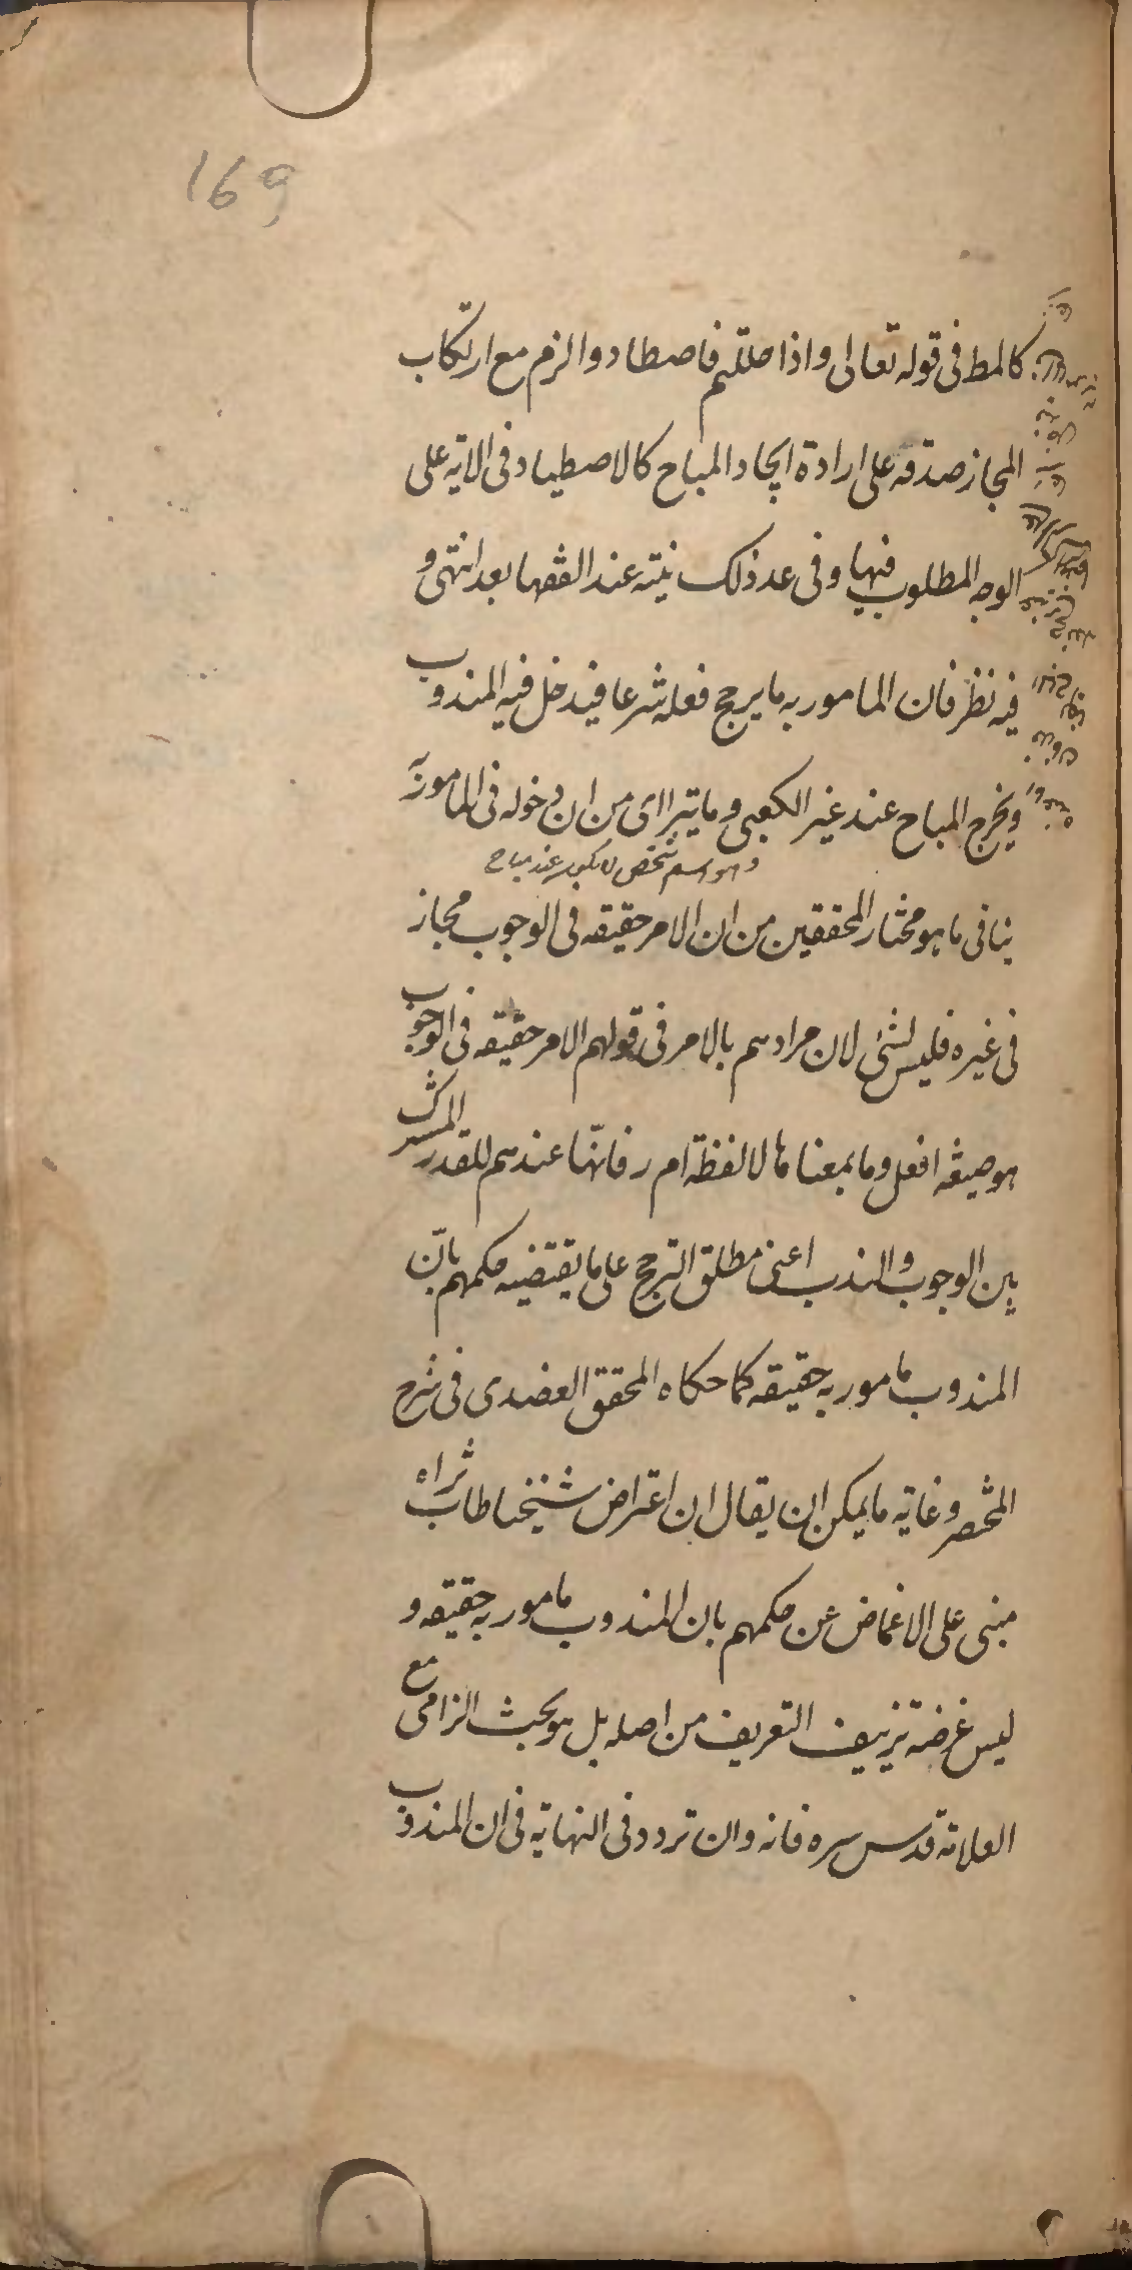 169
كالمط فى قوله تعالى واذا حللتم فاصطادوا لزم مع ارتكاب
المجاز صدقه على ارادة ايجاد المباح كالاصطياد فى الاية على
الوجه المطلوب فيها وفى عد ذلك نيته عند الفقها بعد انتهى و
فيه نظر فان المامور به ما يرجح فعله شرعا فيدخل فيه المندوب
ويخرج المباح عند غير الكعبى وما يتراأى من ان دخوله فى المامور به
وهو اسم شخص لا يكون عنده مباح
ينافى ما هو مختار المحققين من ان الامر حقيقه فى الوجوب مجاز
فى غيره فليس لشئ لان مرادهم بالامر فى قولهم الامر حقيقه فى الوجوب
هو صيغه افعل وما بمعناها لا لفظة ام ر فانّها عندهم للقدر المشترك
بين الوجوب والندب اعنى مطلق الترجيح على ما يقتضيه حكمهم بانّ
المندوب مامور به حقيقه كما حكاه المحقق العضدى فى شرح
المختصر وغاية ما يمكن ان يقال ان اعتراض شيخنا طاب ثراه
مبنى على الاغماض عن حكمهم بان المندوب مامور به حقيقه و
ليس غرضه تزييف التعريف من اصله بل هو بحث الزامى مع
العلامة قدس سره فانه وان تردد فى النهاية فى ان المندوب